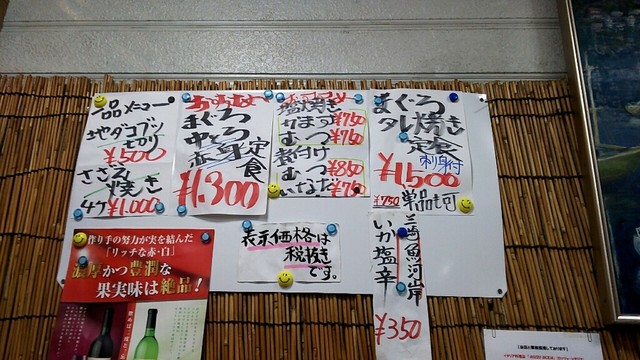 一品メニュー
地ダコブツ
¥500
さざえ
焼き
4ケ ¥1.000
おすすめ
まぐろ
中とろ
赤身
定食
¥1.300
塩焼き
¥750
むつ ¥750
煮付け
むつ ¥850
いなだ ¥750
まぐろ
タレ焼き
定食
刺身付
¥1,500
¥750 単品も可
表示価格は
税抜き
です。
三崎魚河岸
いか塩辛
¥350
作り手の努力が実を結んだ
「リッチな赤・白」
濃厚かつ豊潤な
果実味は絶品!